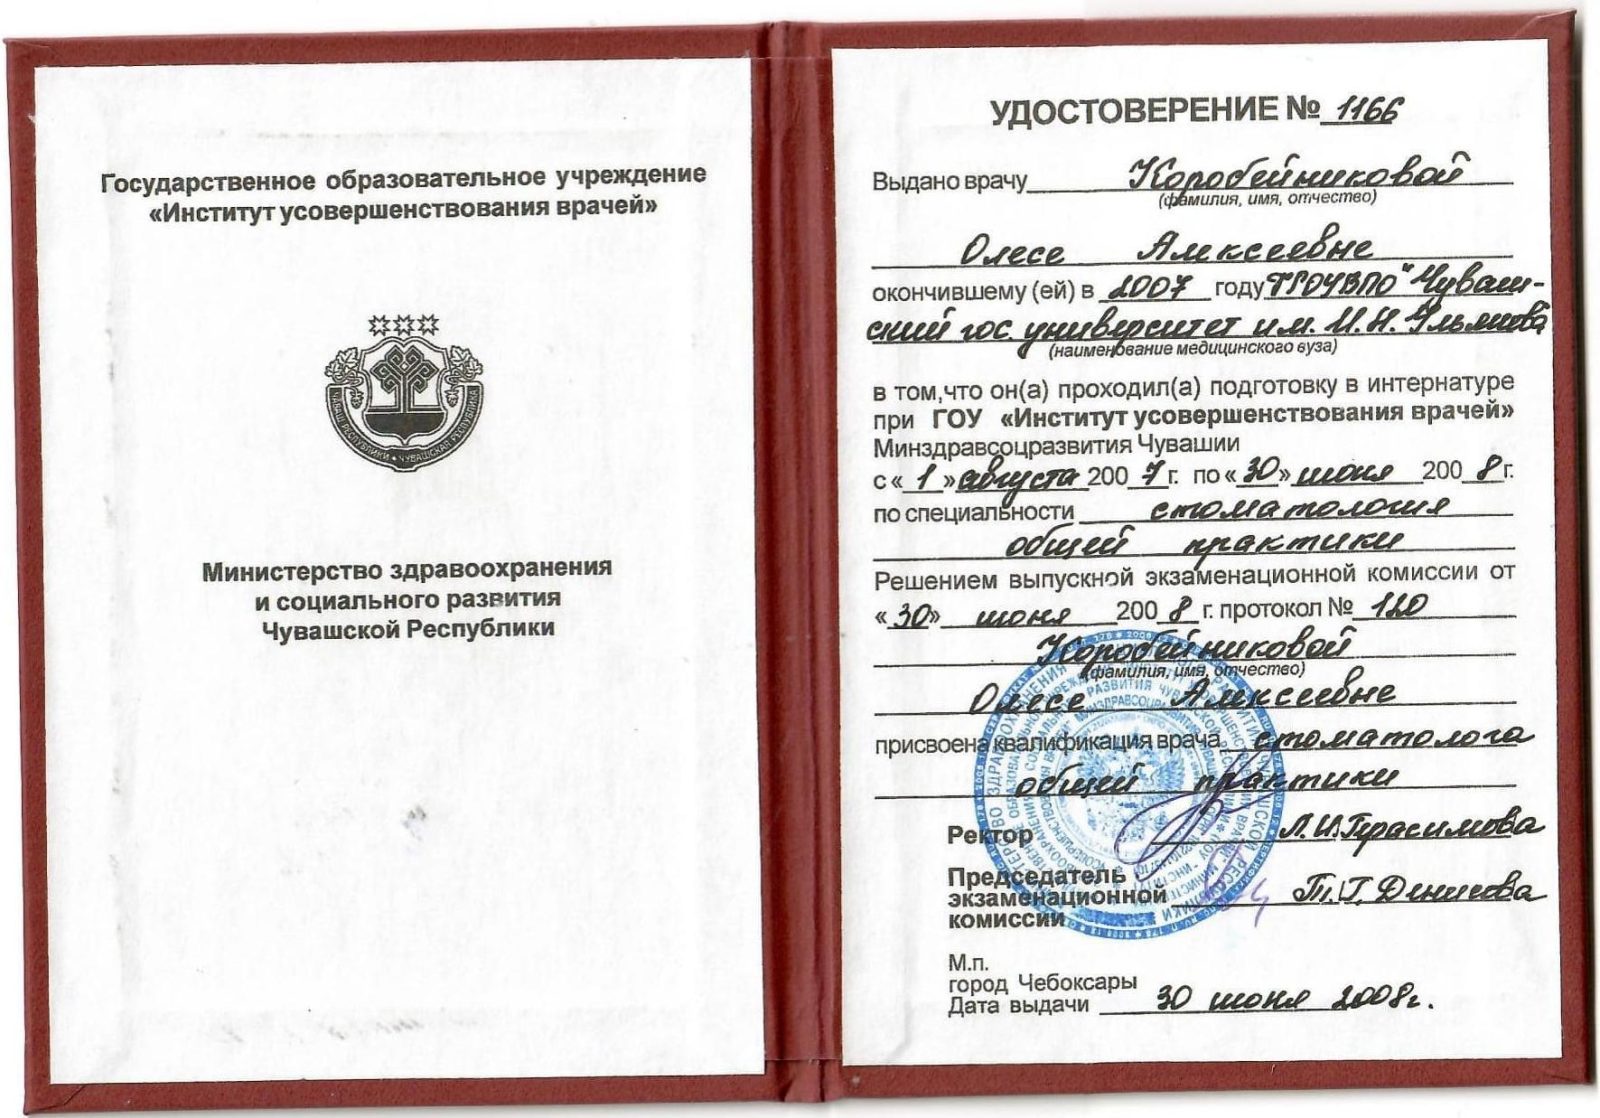 Государственное образовательное учреждение
«Институт усовершенствования врачей»
ЧӐВАШ РЕСПУБЛИКИ • ЧУВАШСКАЯ РЕСПУБЛИКА
Министерство здравоохранения
и социального развития
Чувашской Республики
УДОСТОВЕРЕНИЕ № 1166
Выдано врачу Коробейниковой
(фамилия, имя, отчество)
Олесе Алексеевне
окончившему (ей) в 2007 году ГОУВПО "Чуваш-
ский гос. университет им. И.Н. Ульянова
(наименование медицинского вуза)
в том,что он(а) проходил(а) подготовку в интернатуре
при ГОУ «Институт усовершенствования врачей»
Минздравсоцразвития Чувашии
с «1» августа 2007г. по «30» июня 2008г.
по специальности стоматология
общей практики
Решением выпускной экзаменационной комиссии от
«30» июня 2008г. протокол № 120
Коробейниковой
(фамилия, имя, отчество)
Олесе Алексеевне
присвоена квалификация врача стоматолога
общей практики
Ректор Л.И.Герасимова
Председатель
экзаменационной Т.Г. Денисова
комиссии
М.п.
город Чебоксары
Дата выдачи 30 июня 2008г.